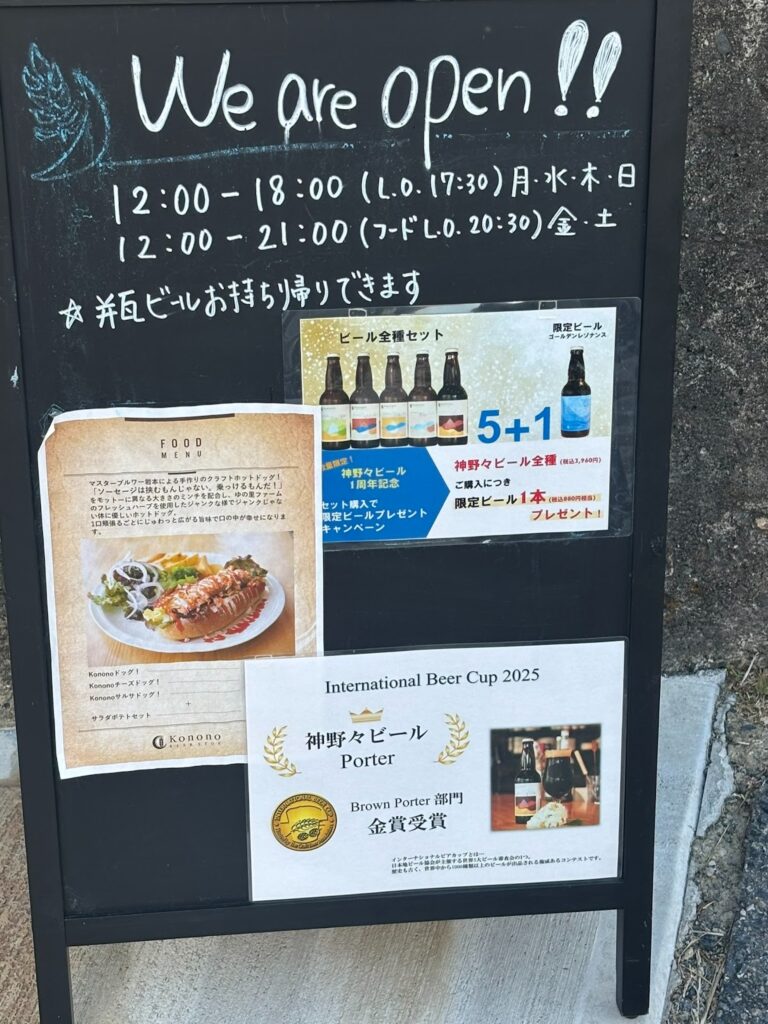 We are open!!
12:00-18:00 (L.O. 17:30) 月・水・木・日
12:00-21:00 (フードL.O. 20:30) 金・土
☆ 瓶ビールお持ち帰りできます
ビール全種セット
限定ビール
ゴールデンレゾナンス
5+1
数量限定！
神野々ビール
1周年記念
セット購入で
限定ビールプレゼント
キャンペーン
神野々ビール全種 (税込3,960円)
ご購入につき
限定ビール1本 (税込880円相当)
プレゼント！
FOOD
MENU
マスターブルワー岩本による手作りのクラフトホットドッグ！
「ソーセージは挟むもんじゃない、乗っけるもんだ！」
をモットーに異なる大きさのミンチを配合し、ゆの里ファーム
のフレッシュハーブを使用したジャンクな様でジャンクじゃな
い体に優しいホットドッグ。
1口頬張るごとにじゅわっと広がる旨味で口の中が幸せになりま
す。
Kononoドッグ！
Kononoチーズドッグ！
Kononoサルサドッグ！
+
サラダポテトセット
Konono
International Beer Cup 2025
神野々ビール
Porter
Brown Porter 部門
金賞受賞
インターナショナルビアカップとは―
日本地ビール協会が主催する世界5大ビール審査会の1つ。
歴史も古く、世界中から1000種類以上のビールが出品される権威あるコンテストです。